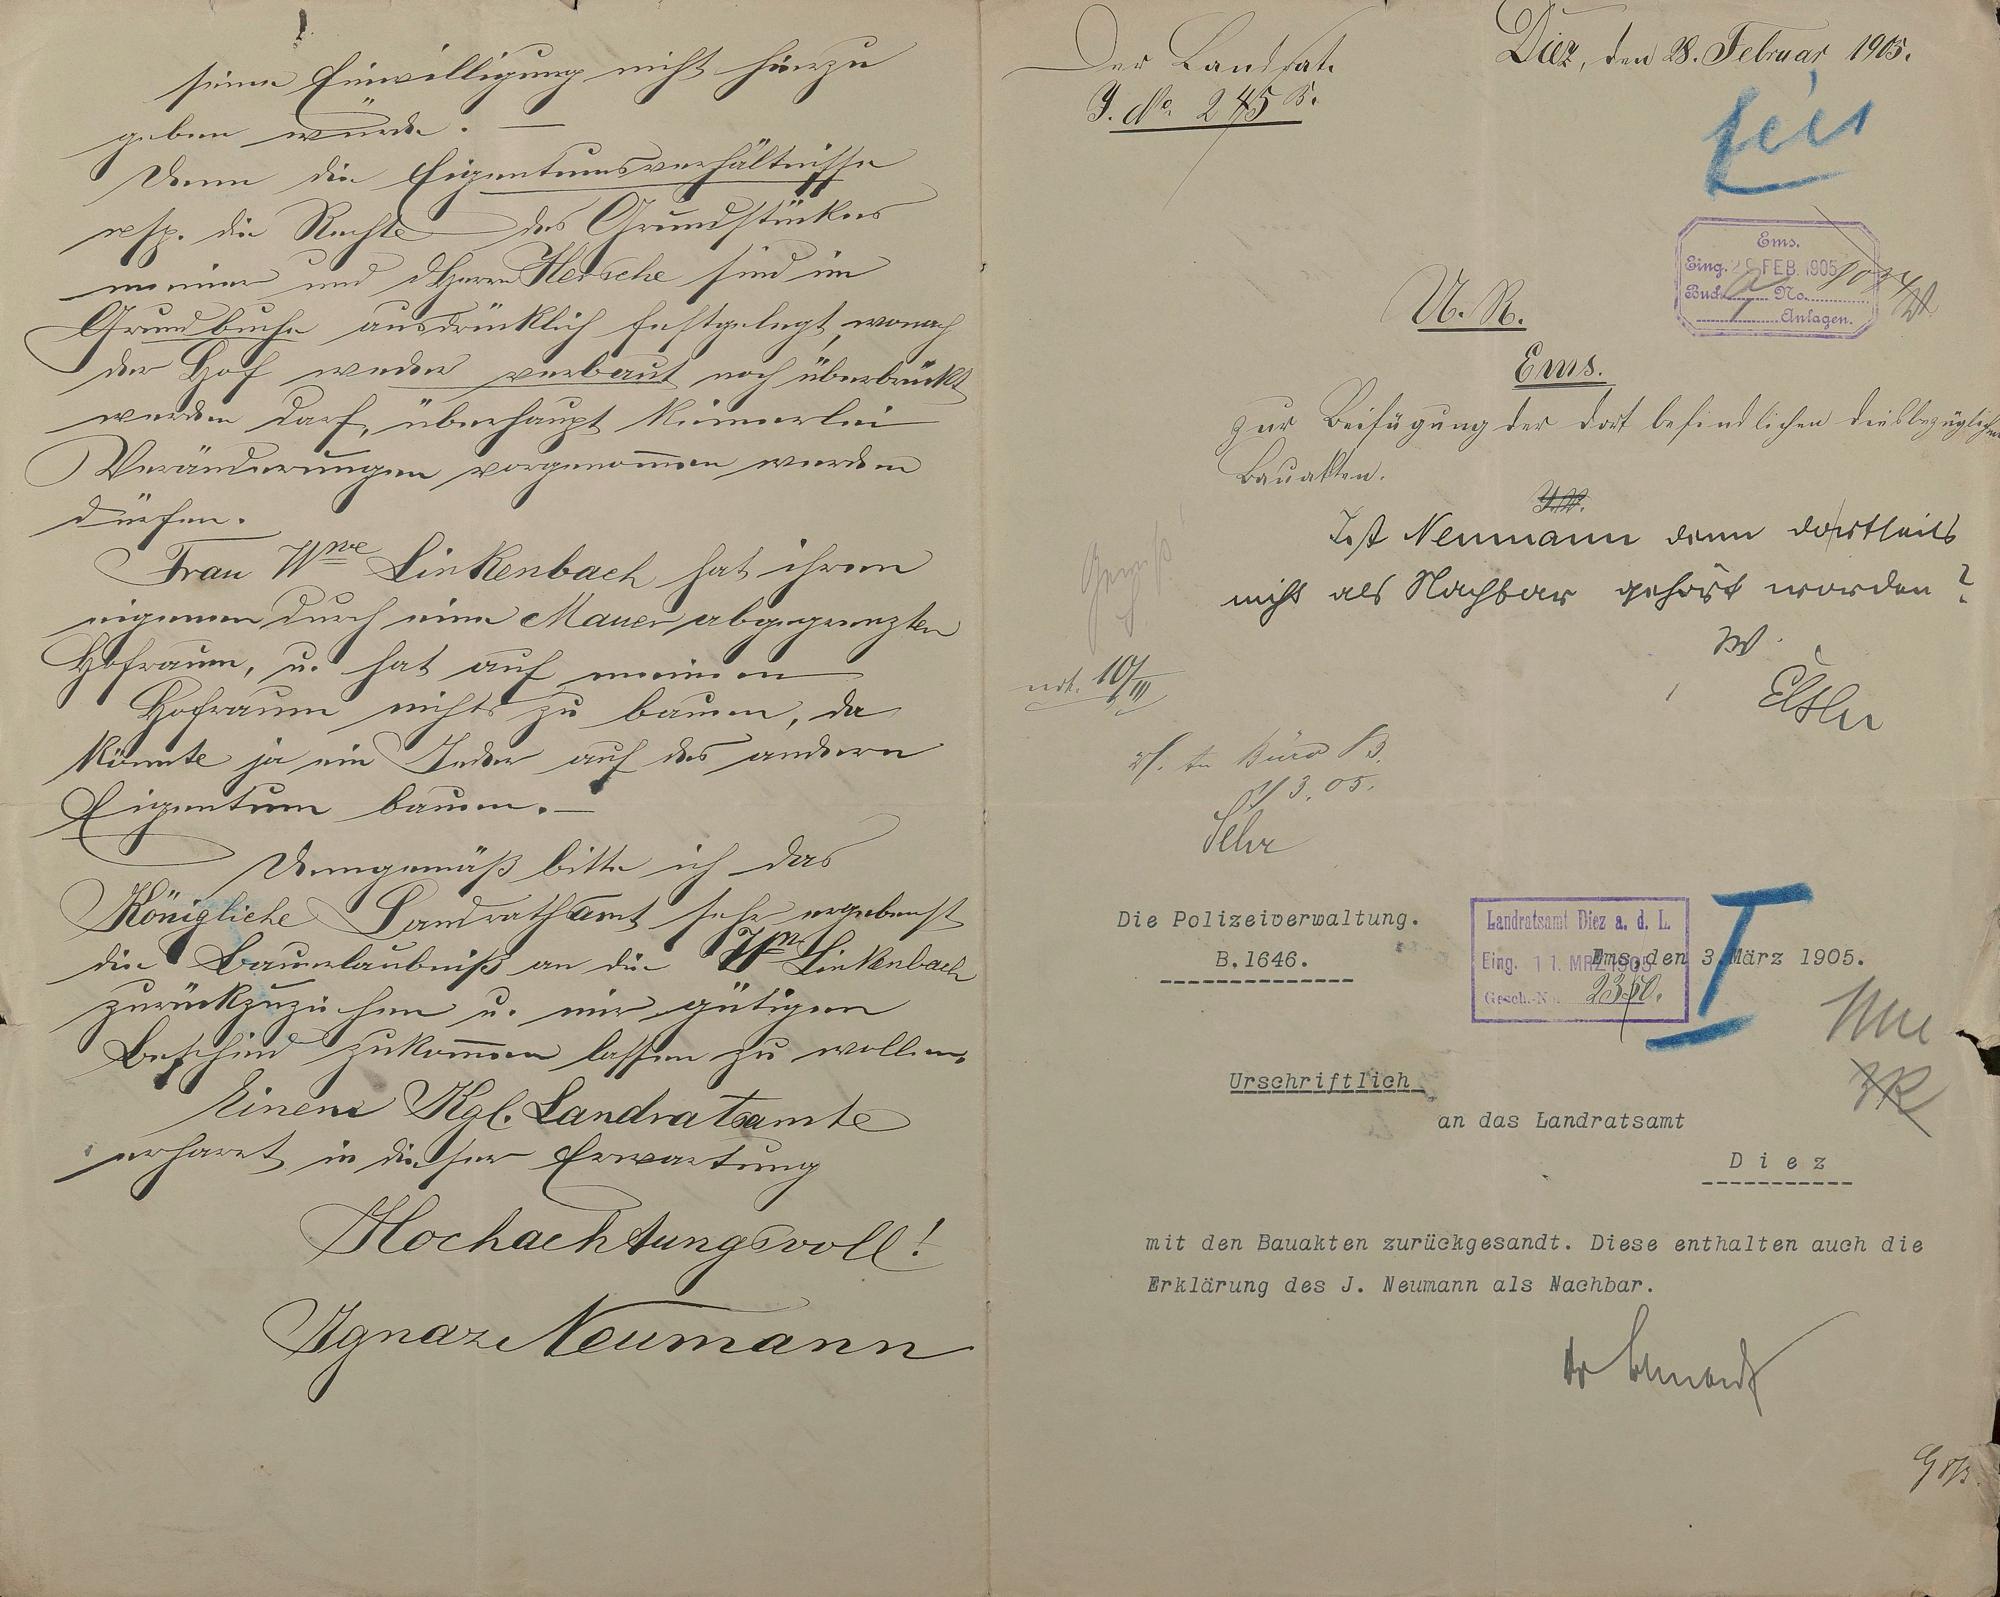 seine Einwilligung nicht hierzu
geben würde. —
Denn die Eigentumsverhältnisse
resp. die Rechte des Grundstückes
meiner und Herrn Hersche sind im
Grundbuche ausdrücklich festgelegt, wonach
der Hof weder verbaut noch überbrückt
werden darf, überhaupt keinerlei
Veränderungen vorgenommen werden
dürfen.
Frau Wwe Linkenbach hat ihren
eigenen durch eine Mauer abgegrenzten
Hofraum, u. hat auf meinen
Hofraum nichts zu bauen, da
könnte ja ein Jeder auf des andern
Eigentum bauen. —
Demgemäß bitte ich das
Königliche Landrathsamt sehr ergebenst
die Bauerlaubniß an die Linkenbach
zurückzuziehen u. mir gütigen
Bescheid zukommen lassen zu wollen.
Einem Kgl. Landratsamte
erharrt in dieser Erwartung
Hochachtungsvoll!
Ignaz Neumann
Der Landrat.
Diez, den 28. Februar 1905.
J. No. 245 B.
Ems.
Eing. FEB. 1905
Buch No.
Anlagen.
U. R.
Ems.
zur Beifügung der dort befindlichen diesbezüglichen
Bauakten.
Ist Neumann denn dortseits
nicht als Nachbar gehört worden?
10/III
Büro B.
3. 05.
Die Polizeiverwaltung.
B.1646.
Landratsamt Diez a. d. L.
Eing. 11. MRZ 1905
Gesch.-No.
Ems, den 3.März 1905.
I
Urschriftlich
an das Landratsamt
Diez
mit den Bauakten zurückgesandt. Diese enthalten auch die
Erklärung des J. Neumann als Nachbar.